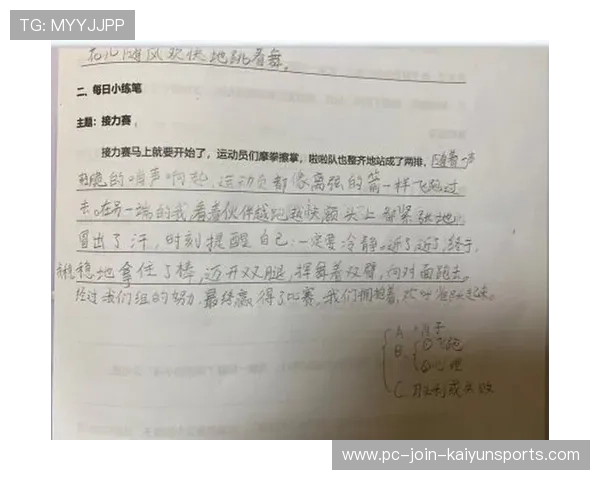 TG: MYYJJPP
花儿随风欢快地跳着舞。
二、每日小练笔
主题：接力赛
接力赛马上就要开始了，运动员们摩拳擦掌，啦啦队也整齐地站成了两排。随着一声
清脆的哨声响起，运动员都像离弦的箭一样飞跑过
去。在另一端的我看着伙伴越跑越快额头上都紧张地
冒出了汗，时刻提醒自己：一定要冷静。近了近了，终于，
我稳稳地拿住了棒，迈开双腿，挥舞着双臂，向对面跑去。
经过我们组的努力，最终赢得了比赛，我们拥抱着，欢呼起来。
A
B ①飞跑
②心理
C 胜利或失败
www.pc-join-kaiyunsports.com